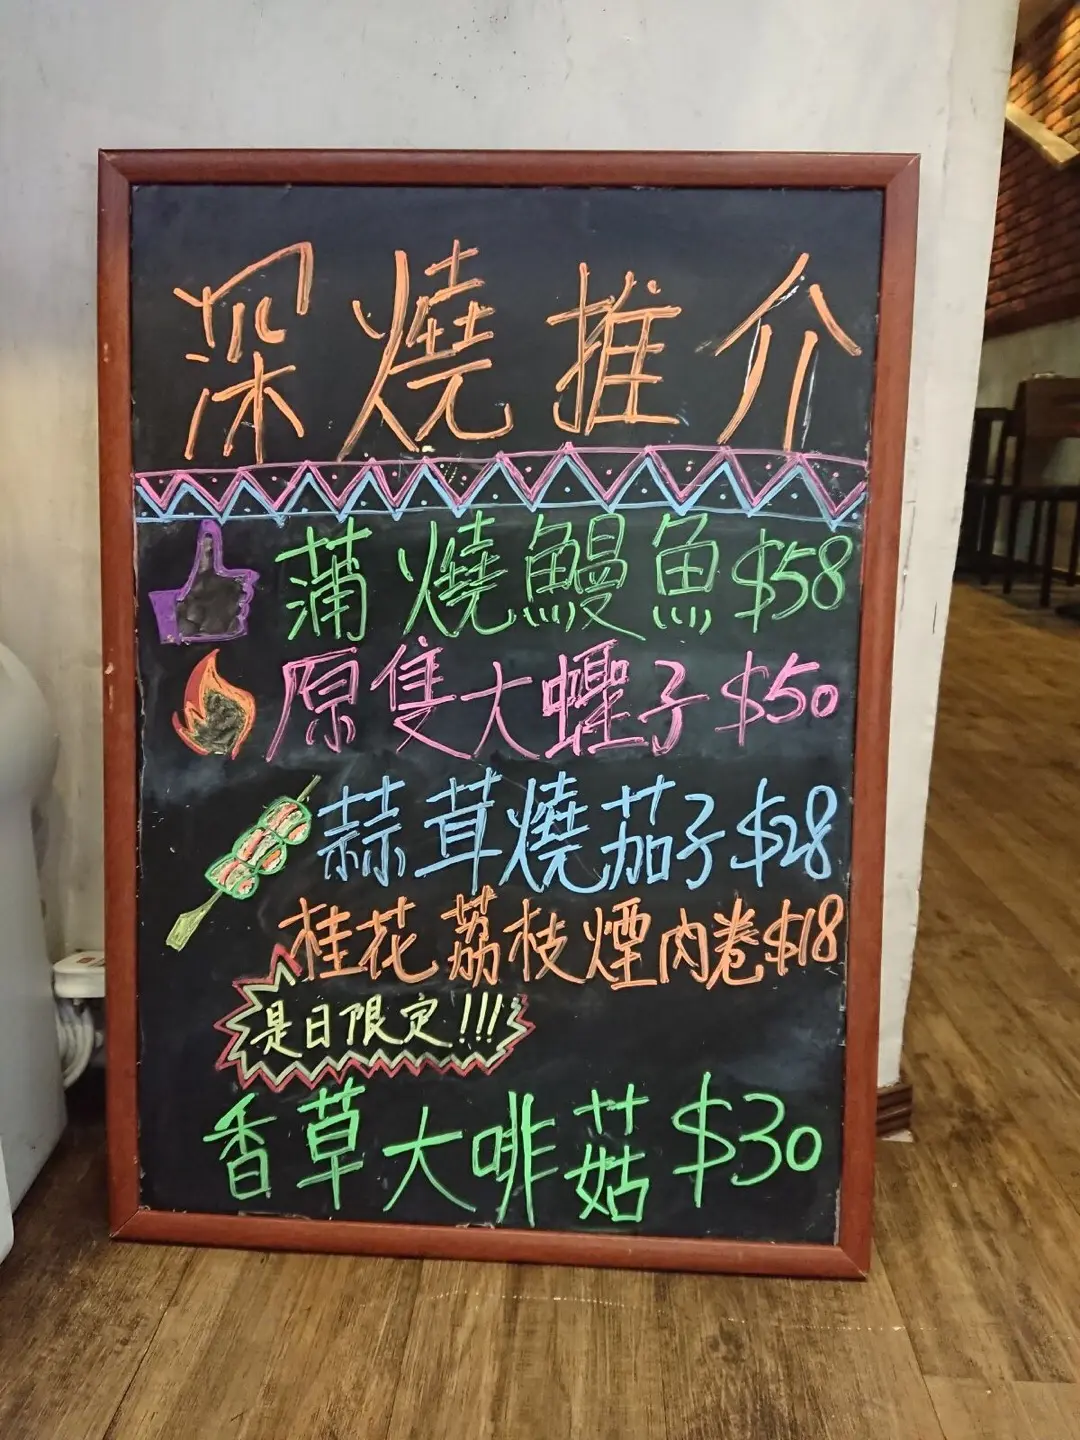 深燒推介
蒲燒鰻魚$58
原隻大蟶子$50
蒜茸燒茄子$28
桂花荔枝煙肉卷$18
是日限定!!!
香草大啡菇$30